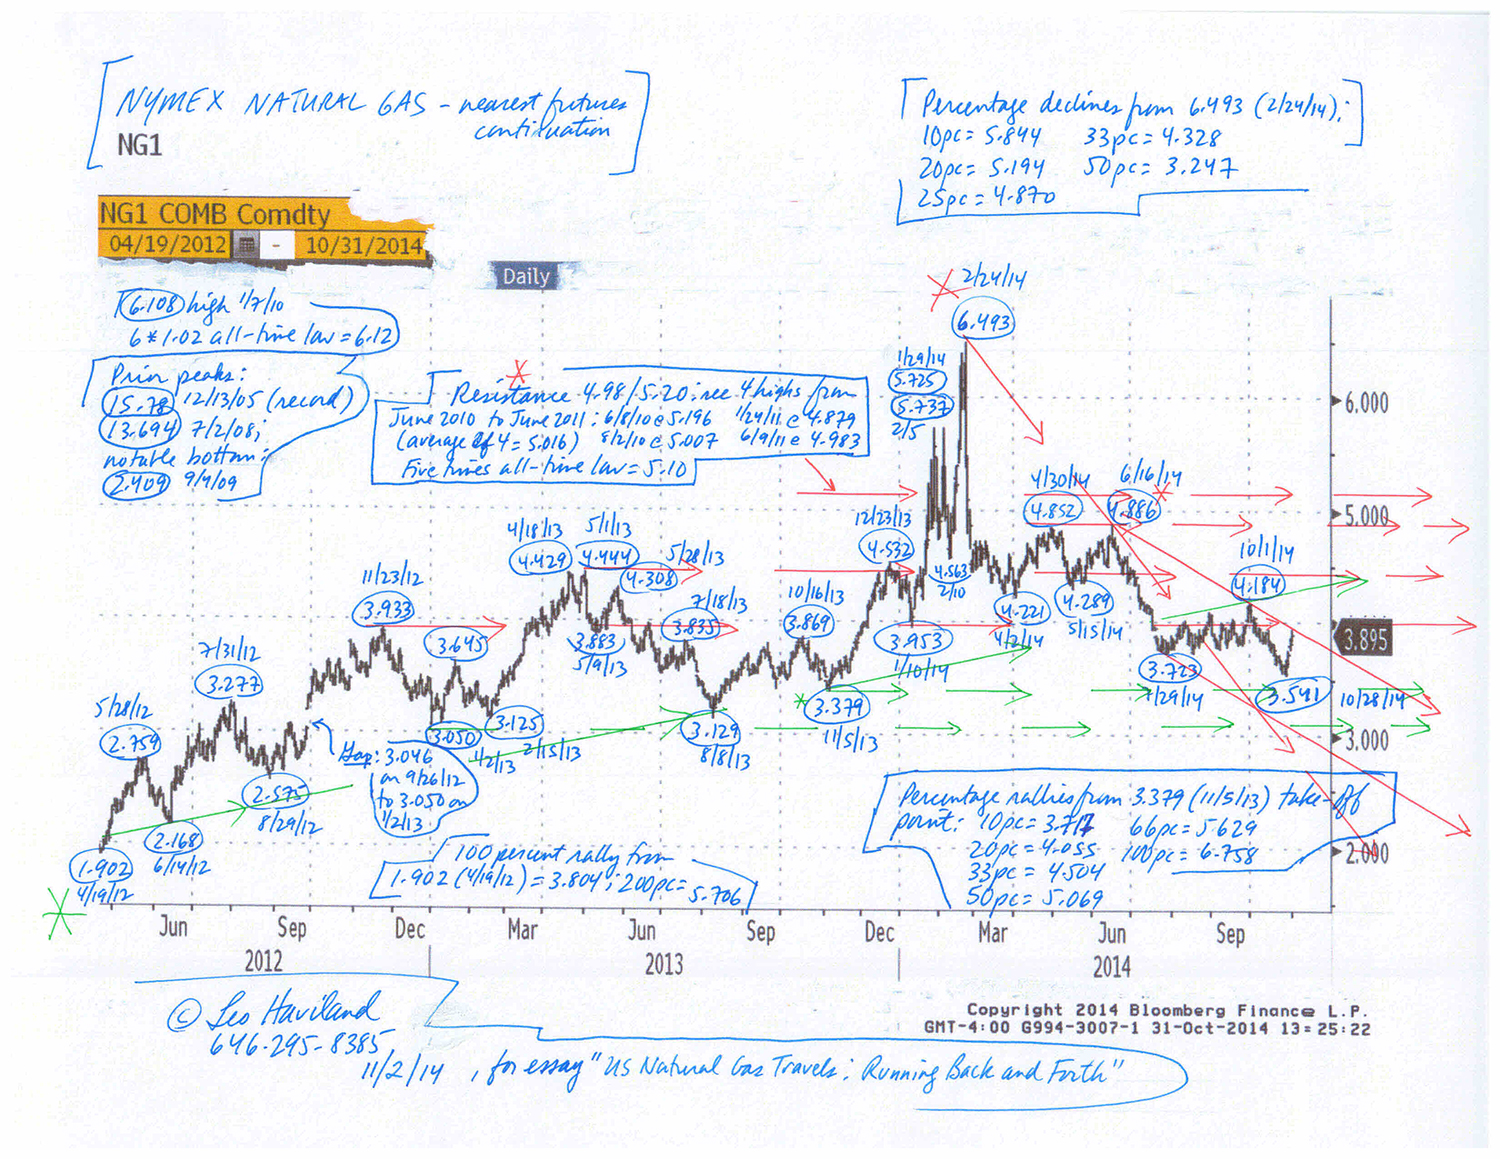 NYMEX NATURAL GAS - nearest futures
continuation
NG1
Percentage declines from 6.493 (2/24/14):
10pc = 5.844 33pc = 4.328
20pc = 5.194 50pc = 3.247
25pc = 4.870
NG1 COMB Comdty
04/19/2012 - 10/31/2014
Daily
6.108 high 1/7/10
6*1.02 all-time low = 6.12
Prior peaks:
15.78 12/13/05 (record)
13.694 7/2/08;
notable bottom:
2.409 9/4/09
Resistance 4.98/5.20: see 4 highs from
June 2010 to June 2011: 6/8/10 @ 5.196 1/24/11 @ 4.879
(average of 4 = 5.016) 8/2/10 @ 5.007 6/9/11 @ 4.983
Five times all-time low = 5.10
2/24/14
6.493
1/29/14
5.725
5.737
2/5
6.000
4/30/14
4.852
6/16/14
4.886
5.000
12/23/13
4.532
4.563
2/10
10/1/14
4.184
4/18/13
4.429
5/1/13
4.444
5/28/13
4.308
11/23/12
3.933
7/18/13
3.835
10/16/13
3.869
4.221
4/2/14
4.289
5/15/14
3.895
3.883
5/9/13
3.953
1/10/14
7/31/12
3.277
3.645
3.723
7/29/14
3.541
10/28/14
5/28/12
2.759
3.050
1/2/13
3.125
2/15/13
3.129
8/8/13
3.379
11/5/13
3.000
Gap: 3.046
on 9/26/12
to 3.050 on
1/2/13
2.575
8/29/12
2.168
6/14/12
1.902
4/19/12
Percentage rallies from 3.379 (11/5/13) take-off
point: 10pc = 3.717 66pc = 5.629
20pc = 4.055 100pc = 6.758
33pc = 4.504
50pc = 5.069
2.000
100 percent rally from
1.902 (4/19/12) = 3.804; 200pc =
5.706
Jun Sep Dec Mar Jun Sep Dec Mar Jun Sep
2012 2013 2014
© Leo Haviland
646-295-8385
11/2/14, for essay "US Natural Gas Travels: Running Back and Forth"
Copyright 2014 Bloomberg Finance L.P.
GMT-4:00 G994-3007-1 31-Oct-2014 13:25:22